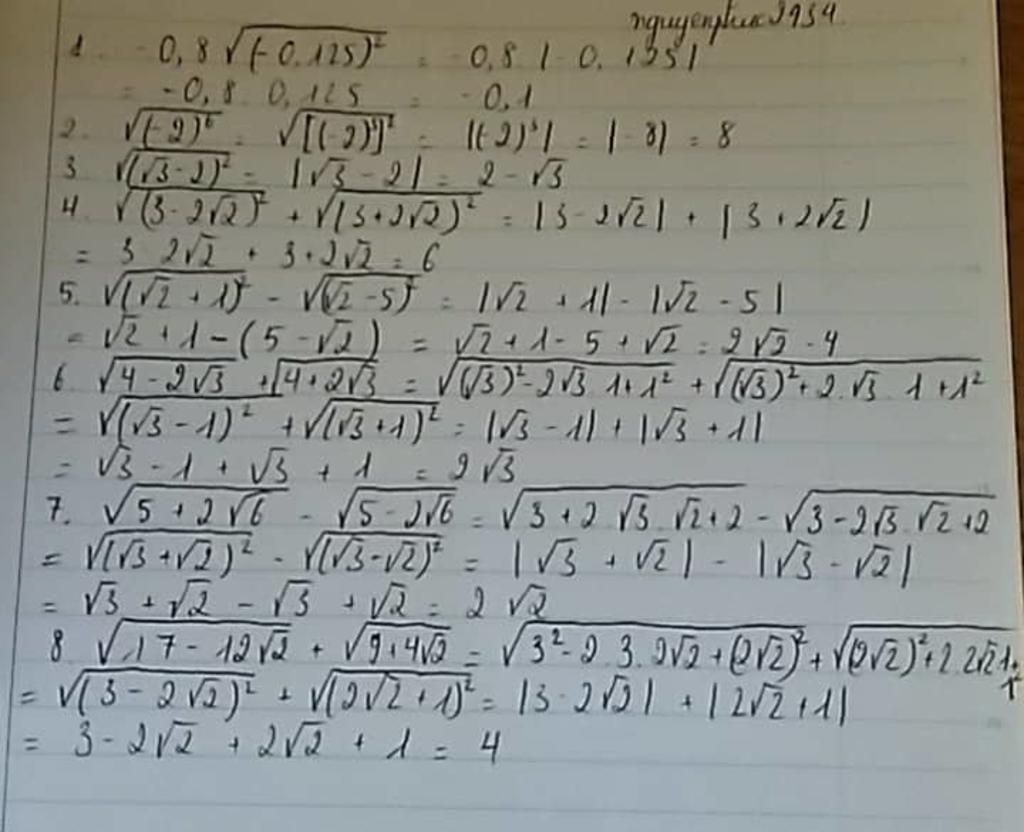 nguyenphuc2934.
1. -0,8 √(-0,125)² = -0,8 |-0,125|
= -0,8 . 0,125 = -0,1
2. √(-2)⁶ = √[(-2)³]² = |(-2)³| = |-8| = 8
3 √(√3-2)² = |√3-2| = 2-√3
4. √(3-2√2)² + √(3+2√2)² = |3-2√2| + |3+2√2|
= 3-2√2 + 3+2√2 = 6
5. √(√2+1)² - √(√2-5)² = |√2+1| - |√2-5|
= √2+1-(5-√2) = √2+1-5+√2 = 2√2-4
6. √4-2√3 + √4+2√3 = √(√3)²-2√3.1+1² + √(√3)²+2.√3.1+1²
= √(√3-1)² + √(√3+1)² = |√3-1| + |√3+1|
= √3-1+√3+1 = 2√3
7. √5+2√6 - √5-2√6 = √3+2.√3.√2+2 - √3-2√3.√2+2
= √(√3+√2)² - √(√3-√2)² = |√3+√2| - |√3-√2|
= √3+√2-√3+√2 = 2√2
8 √17-12√2 + √9+4√2 = √3²-2.3.2√2+(2√2)² + √(2√2)²+2.2√2.1+1²
= √(3-2√2)² + √(2√2+1)² = |3-2√2| + |2√2+1|
= 3-2√2+2√2+1 = 4